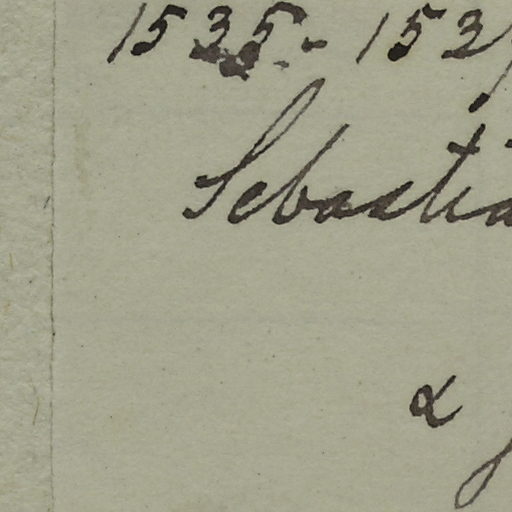 1535-153
Sebastia
&